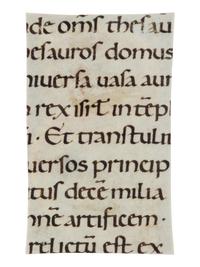 de oms thesau
hesauros domus
niversa vasa aur
rex isrl in tēpl
. Et transtulit
versos princip
tus decē milia
nnē artificem .
relictū est ex